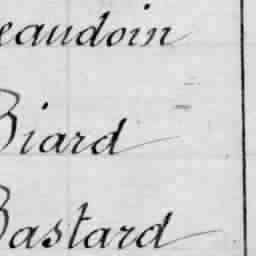 eaudoin
Biard
Bastard